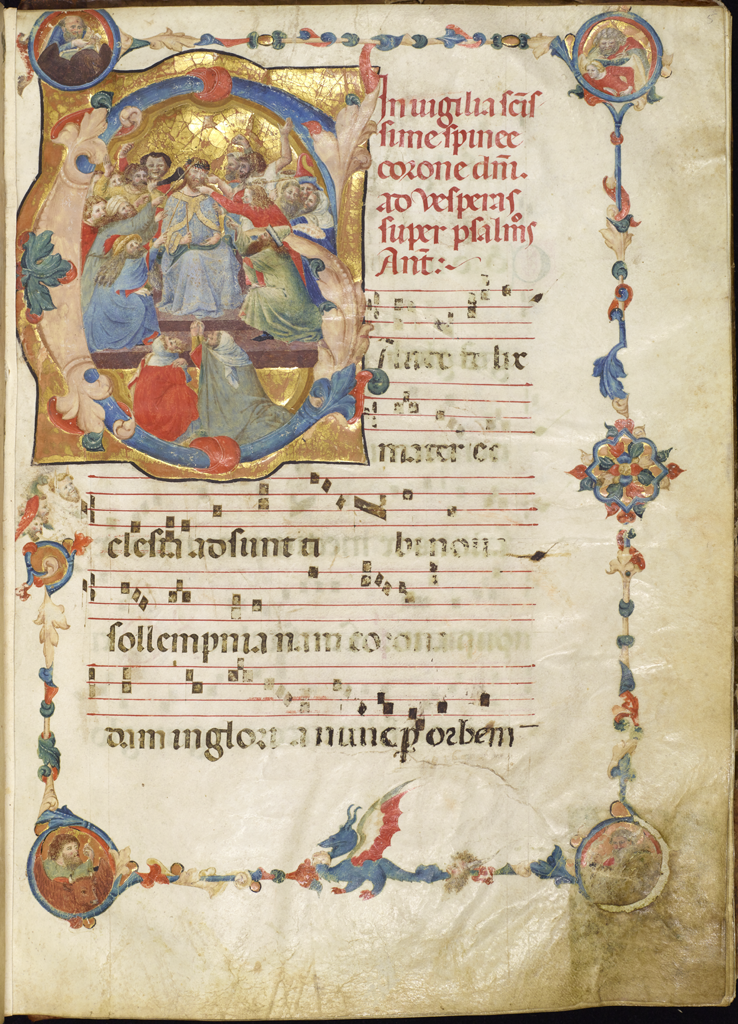 In uigilia scīs
sime spinee
corone dnī.
ad vesperas
super psalmos
Ant:
felix
mater ec
clesia adsunt ti bi noua
sollempnia nam corona
dam in gloria nunc p orbem